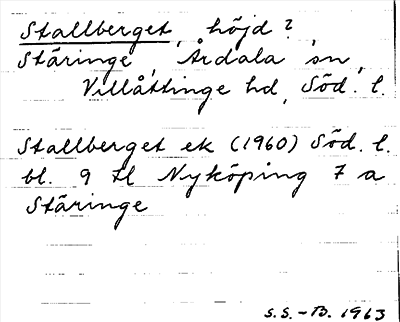 Stallberget, höjd?,
Stäringe, Årdala sn,
Villåttinge hd, Söd. l.
Stallberget ek (1960) Söd. l.
bl. 9 H Nyköping 7 a
Stäringe
S.S.-B. 1963